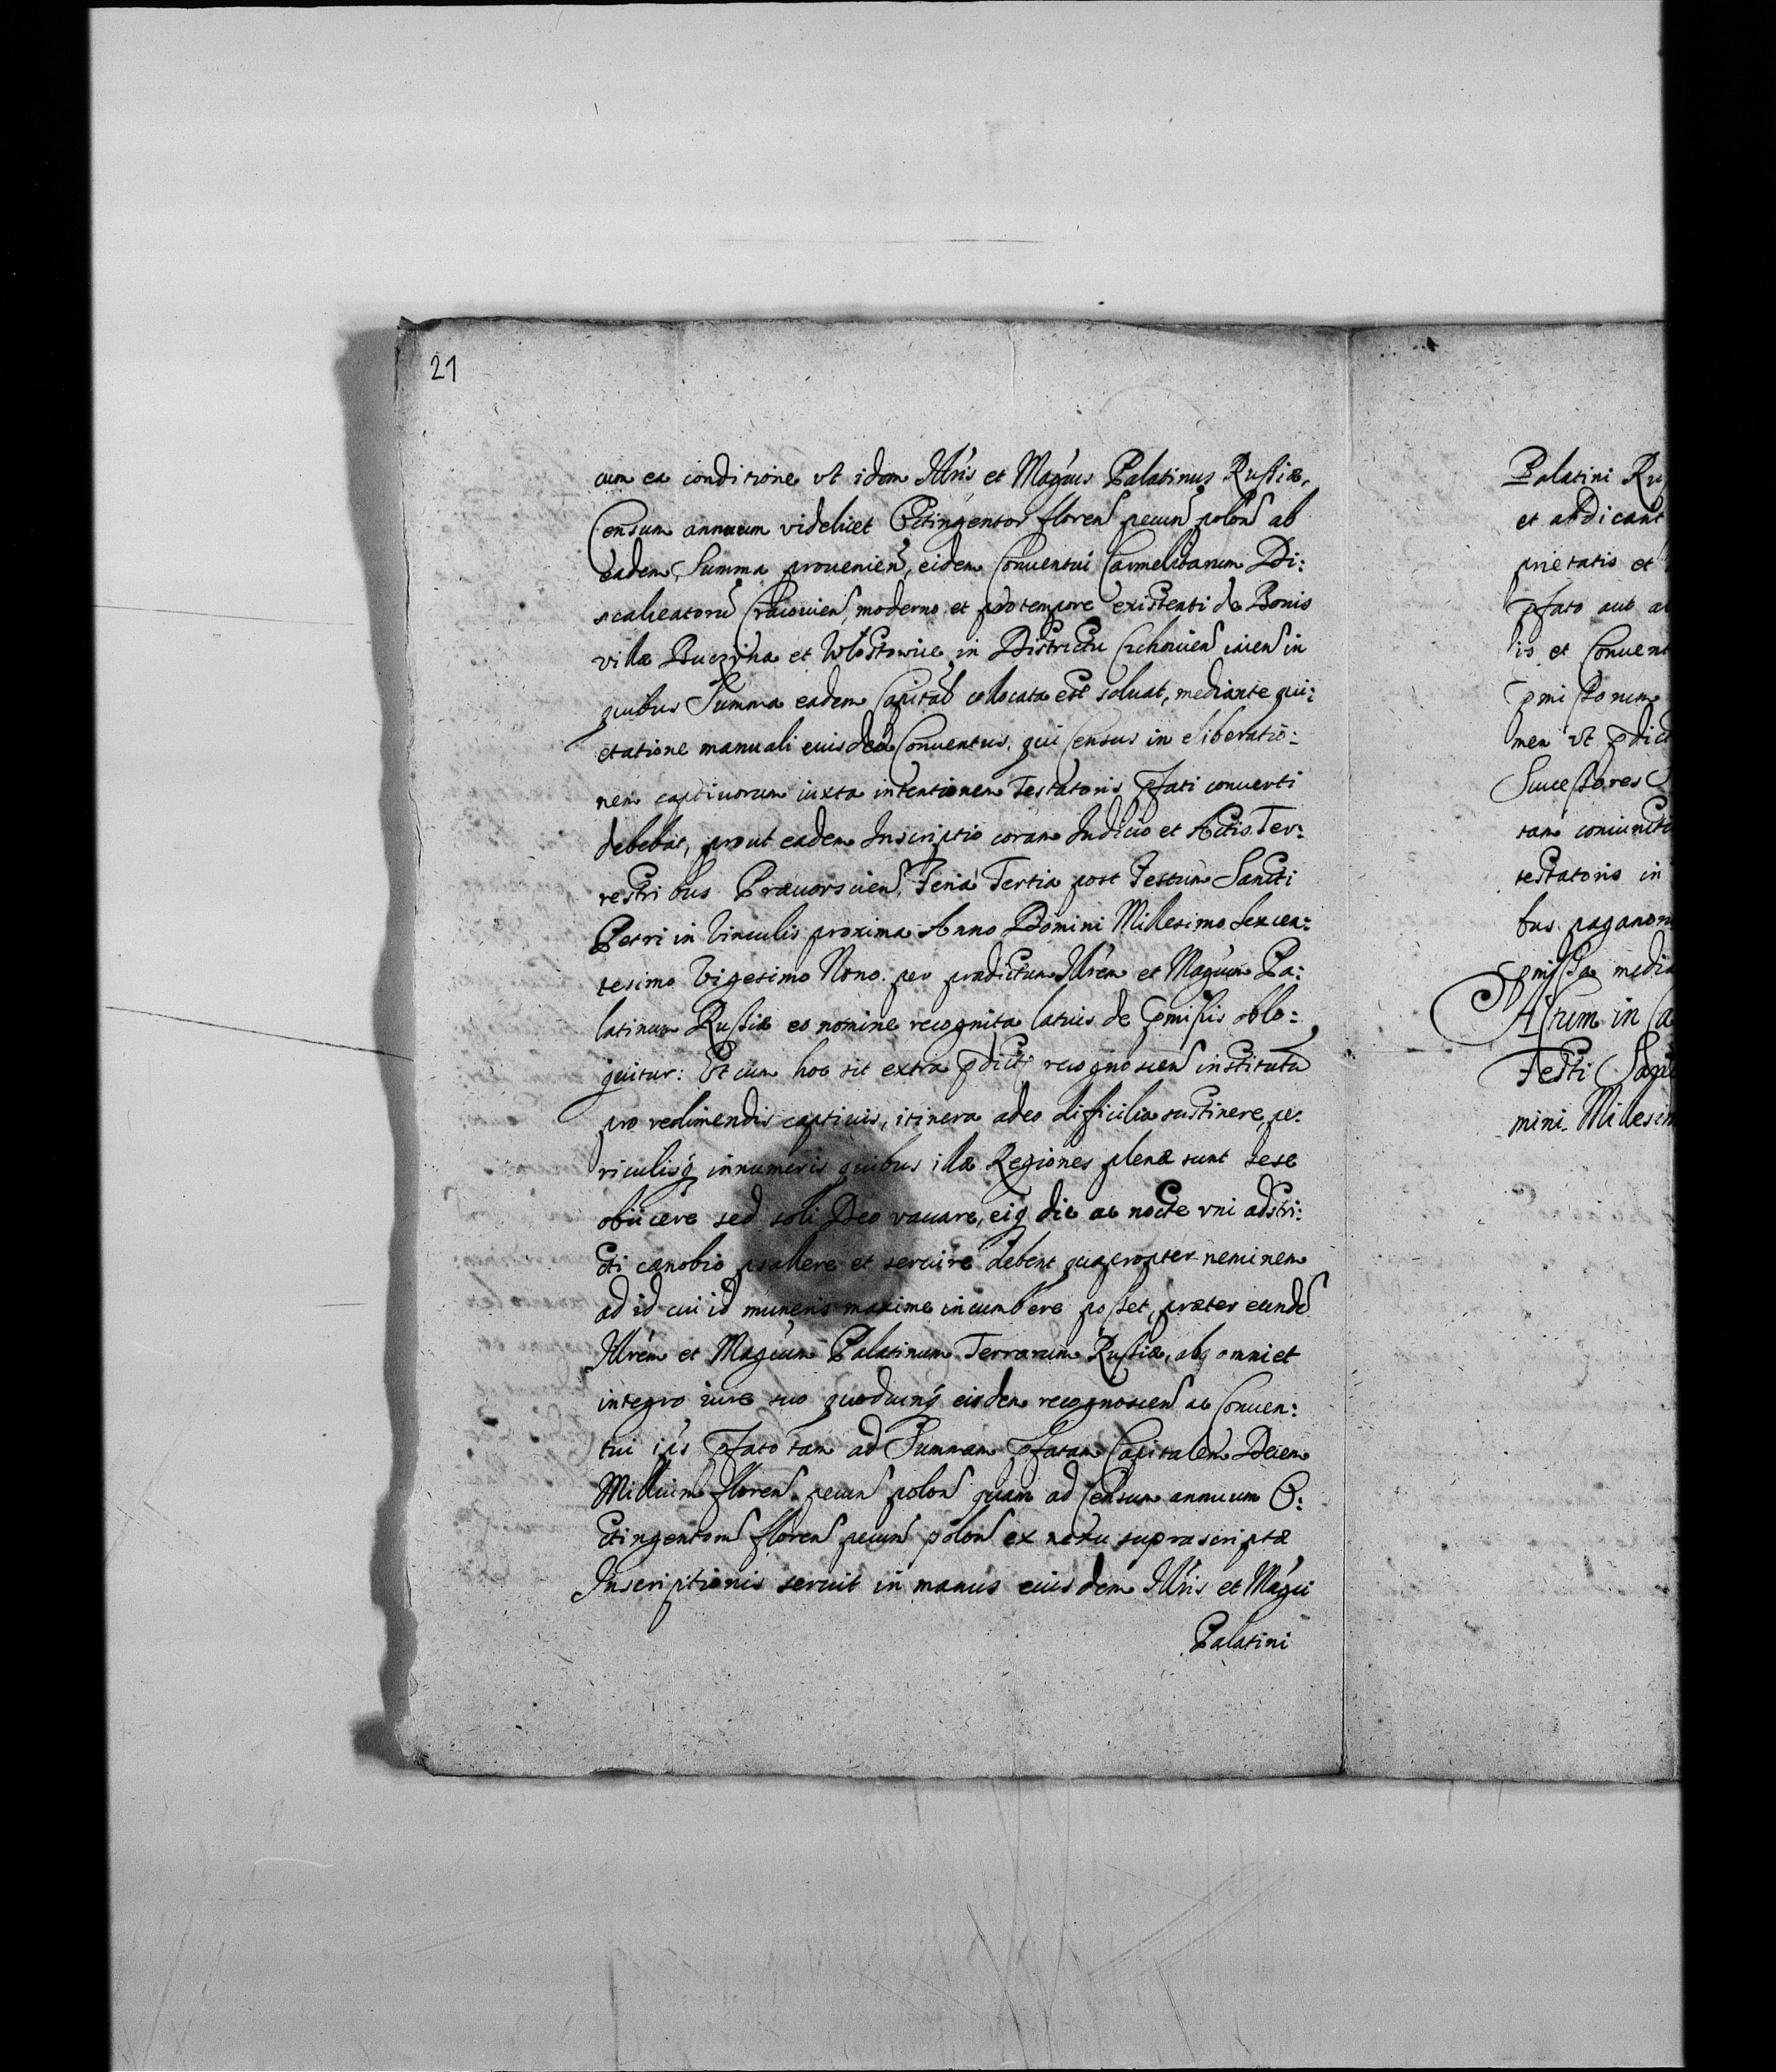 21
cum ea conditione vt idem Illris et Magcus Palatinus Russiæ,
Censum annuum videlicet Octingentor floren pecun polon ab
eadem Summa prouenien, eidem Conuentui Carmelitarum Di:
scalceatorū Cracouien, moderno et pro tempore existenti de Bonis
villæ Buczyna et Wlostowice in Districtu iacen in
quibus Summa eadem Capital collocata est soluat, mediante qui:
etatione manuali euisdem Conuentus. qui Census in eliberatio:
nem captiuorum iuxta intentionem Testatoris pfati conuerti
debebat, prout eadem Inscriptio coram Iudicio et Actis Ter:
restribus Præuorscien, Feria Tertia post Festum Sancti
Petri in Vinculis proxima Anno Domini Millesimo Sexcen:
tesimo Vigesimo Nono. per prædictum Illrem et Magcum Pa:
latinum Russiæ eo nomine recognita latius de pmissis oblo:
quitur: Et cum hoc sit extra pdict recognoscen institutū
pro redimendis captiuis, itinera adeo difficilia sustinere, pe:
riculisq innumeris quibus illæ Regiones plenæ sunt sese
obiicere sed soli Deo vacare, eiq die ac nocte vni adstri:
cti cænobio psallere et seruire debent quapropter neminem
ad id cui id muneris maxime incumbere posset, præter eunde
Illrem et Magcum Palatinum Terrarum Russiæ, abq omni et
integro iure suo quodcunq eisdem recognoscen ac Conuen:
tui ips pfato tam ad Summam pfatam Capitalem Decem
Millium floren pecun polon quam ad Censum annuum O:
ctingentorū floren pecun polon ex nexu suprascriptæ
Inscriptionis seruit in manus euisdem Illris et Magci
Palatini
Palatini
et abdicant
prietatis et
pfato aut
lis et Conuent
pmissorum
men vt pdict
Successores
tam coniunct
testatoris in
bus paganor
pmissa media
Actum in Ca
Festi
mini Millesim